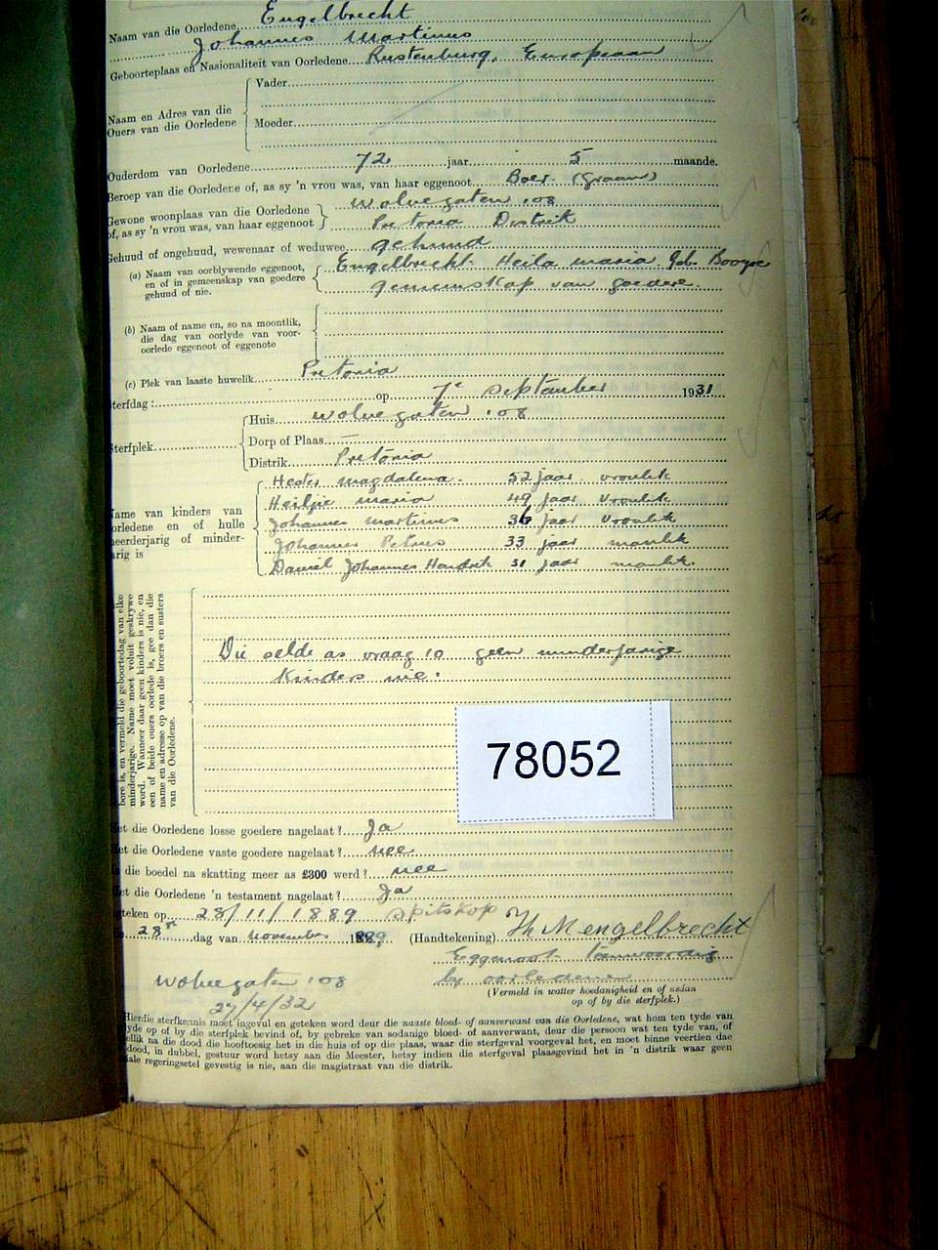 Naam van die Oorledene Engelbrecht
Johannes Martinus
Geboorteplaas en Nasionaliteit van Oorledene Rustenburg, Europiaan
Naam en Adres van die Ouers van die Oorledene
Vader
Moeder
Ouderdom van Oorledene 72 jaar 5 maande.
Beroep van die Oorledene of, as sy 'n vrou was, van haar eggenoot Boer. (Graan)
Gewone woonplaas van die Oorledene of, as sy 'n vrou was, van haar eggenoot
Wolvegaten 108
Pretoria Distrik
Gehuud of ongehuud, wewenaar of weduwee gehuud
(a) Naam van oorblywende eggenoot, en of in gemeenskap van goedere gehuud of nie.
Engelbrecht Heila Maria Geb. Booyse
gemeenskap van goedere.
(b) Naam of name en, so na moontlik, die dag van oorlyde van vooroorlede eggenoot of eggenote
(c) Plek van laaste huwelik Pretoria
terfdag: op 7e September 1931
terfplek
Huis Wolvegaten 108
Dorp of Plaas —
Distrik Pretoria
Name van kinders van
orledene en of hulle
eerderjarig of minder-
arig is
Hester Magdalena. 52 jaar vroulik
Heiltjie Maria 49 jaar vroulik
Johannes Martinus 36 jaar vroulik
Johannes Petrus 33 jaar manlik
Daniel Johannes Hendrik 31 jaar manlik
bore is, en vermeld die geboortedag van elke
minderjarige. Name moet voluit geskrywe
word. Wanneer daar geen kinders is nie, en
een of beide ouers oorlede is, gee dan die
name en adresse op van die broers en susters
van die Oorledene.
Die selde as vraag 10 geen minderjarige
kinders nie.
78052
et die Oorledene losse goedere nagelaat? Ja
et die Oorledene vaste goedere nagelaat? nee
die boedel na skatting meer as £300 werd? nee
et die Oorledene 'n testament nagelaat? Ja
eteken op 28/11/1889 Spitskop
28ste dag van November 1889 (Handtekening) H M engelbrecht
Eggenoot teenwoordig
by oorledene
(Vermeld in watter hoedanigheid en of aldan
op of by die sterfplek.)
Wolvegaten 108
27/4/32
Hierdie sterfkennis moet ingevul en geteken word deur die naaste bloed- of aanverwant van die Oorledene, wat hom ten tyde van
yde op of by die sterfplek bevind of, by gebreke van sodanige bloed- of aanverwant, deur die persoon wat ten tyde van, of
llik na die dood die hooftoesig het in die huis of op die plaas, waar die sterfgeval voorgeval het, en moet binne veertien dae
dood, in dubbel, gestuur word hetsy aan die Meester, hetsy indien die sterfgeval plaasgevind het in 'n distrik waar geen
ale regeringsetel gevestig is nie, aan die magistraat van die distrik.